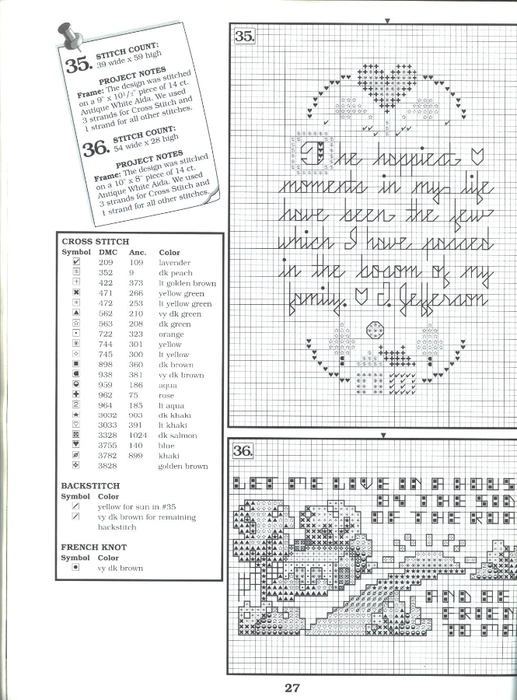 35. STITCH COUNT:
39 wide x 59 high
PROJECT NOTES
Frame: The design was stitched
on a 9" x 10½" piece of 14 ct.
Antique White Aida. We used
3 strands for Cross Stitch and
1 strand for all other stitches.
36. STITCH COUNT:
54 wide x 28 high
PROJECT NOTES
Frame: The design was stitched
on a 10" x 8" piece of 14 ct.
Antique White Aida. We used
3 strands for Cross Stitch and
1 strand for all other stitches.
CROSS STITCH
Symbol DMC Anc. Color
209 109 lavender
352 9 dk peach
422 373 lt golden brown
471 266 yellow green
472 253 lt yellow green
562 210 vy dk green
563 208 dk green
722 323 orange
744 301 yellow
745 300 lt yellow
898 360 dk brown
938 381 vy dk brown
959 186 aqua
962 75 rose
964 185 lt aqua
3032 903 dk khaki
3033 391 lt khaki
3328 1024 dk salmon
3755 140 blue
3782 899 khaki
3828 golden brown
BACKSTITCH
Symbol Color
yellow for sun in #35
vy dk brown for remaining
backstitch
FRENCH KNOT
Symbol Color
vy dk brown
35.
The happiest
moments in my life
have been the few
which I have passed
in the bosom of my
family J. Jefferson
36.
LET ME LIVE IN A HOUS
BY THE SID
OF THE ROA
AND BE
FRIEN
TO MA
27